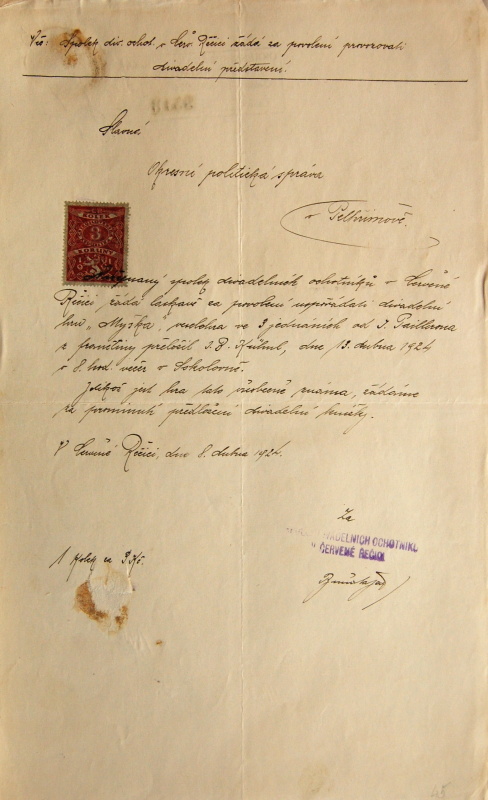 Věc: Spolek div. ochot. v Červ. Řečici žádá za povolení provozovati
divadelní představení.
Slavná
Okresní politická správa
v Pelhřimově.
KOLEK
3
KORUNY
spolek divadelních ochotníků v Červené
Řečici, žádá laskavě za povolení uspořádati divadelní
hru „Myška", veselohra ve 3 jednáních od
z frančtiny přeložil J. B. dne 13. dubna 1924
v 8. hod. večer v Sokolovně.
Jelikož jest hra tato všeobecně známa, žádáme
za prominutí předložení divadelní knížky.
V Červené Řečici, dne 8. dubna 1924.
Za
DIVADELNÍCH OCHOTNÍKŮ
V ČERVENÉ ŘEČICI
1 Kolek za 3 Kč.
45